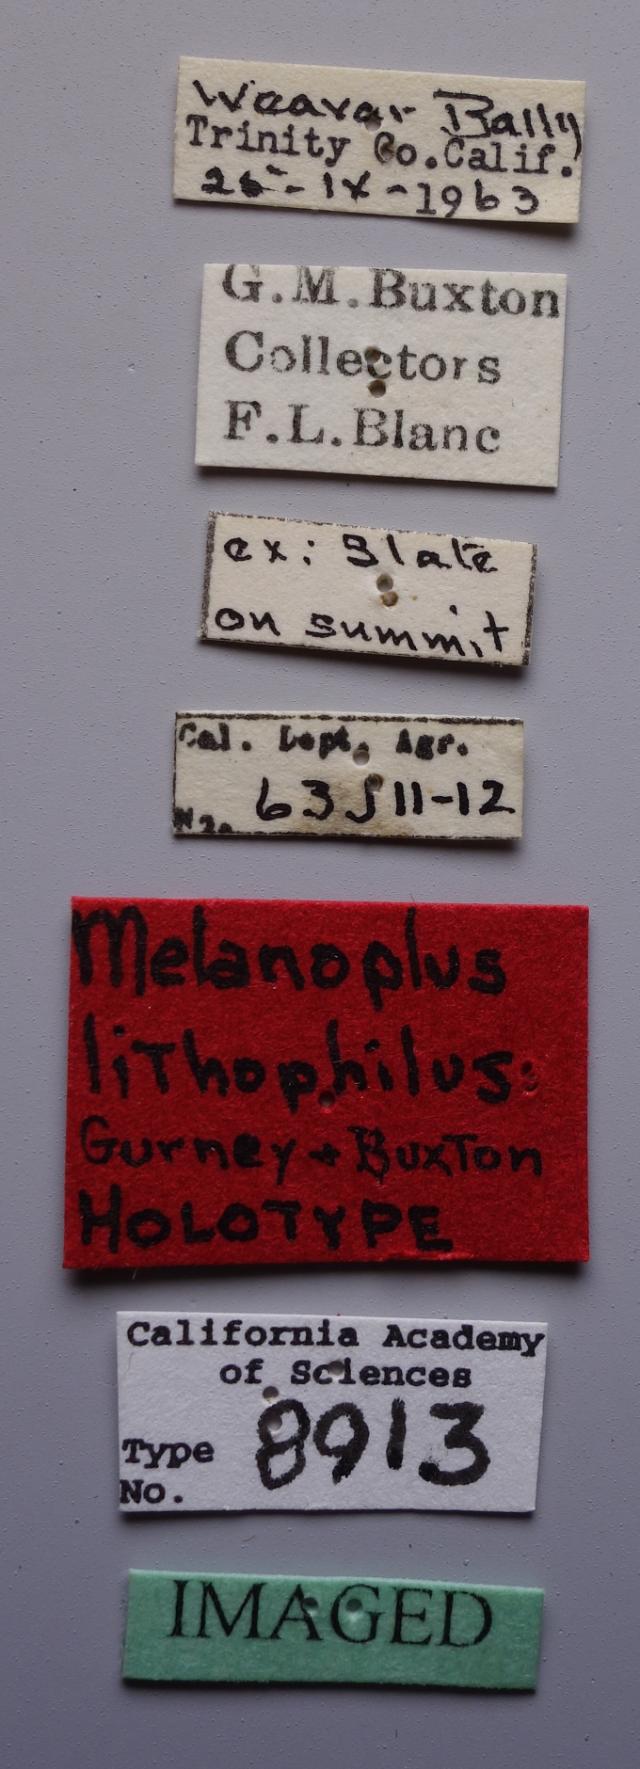 Weaver Bally
Trinity Co. Calif.
-IX-1963
G.M. Buxton
Collectors
F.L. Blanc
ex: Slate
on summit
Cal. Dept. Agr.
63J11-12
Melanoplus
lithophilus
Gurney + Buxton
HOLOTYPE
California Academy
of Sciences
Type
No. 8913
IMAGED